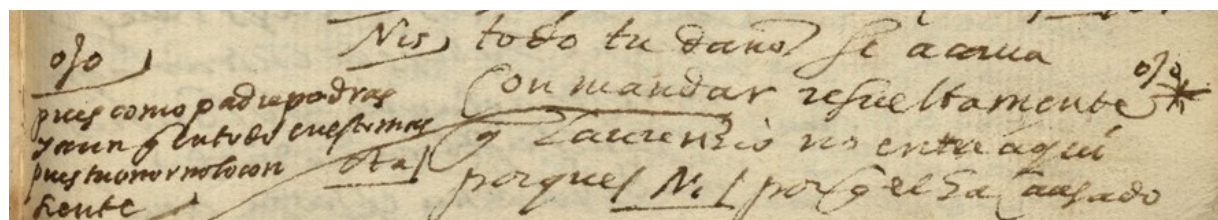 ojo
pues como padre podras
y aun q en todo en estremas
pues tu onor no lo con
siente
Nis todo tu daño se acaua
Con mandar resueltamente ojo
q Laurençio no entre aqui
Ota porque Ni porq el Sa causado